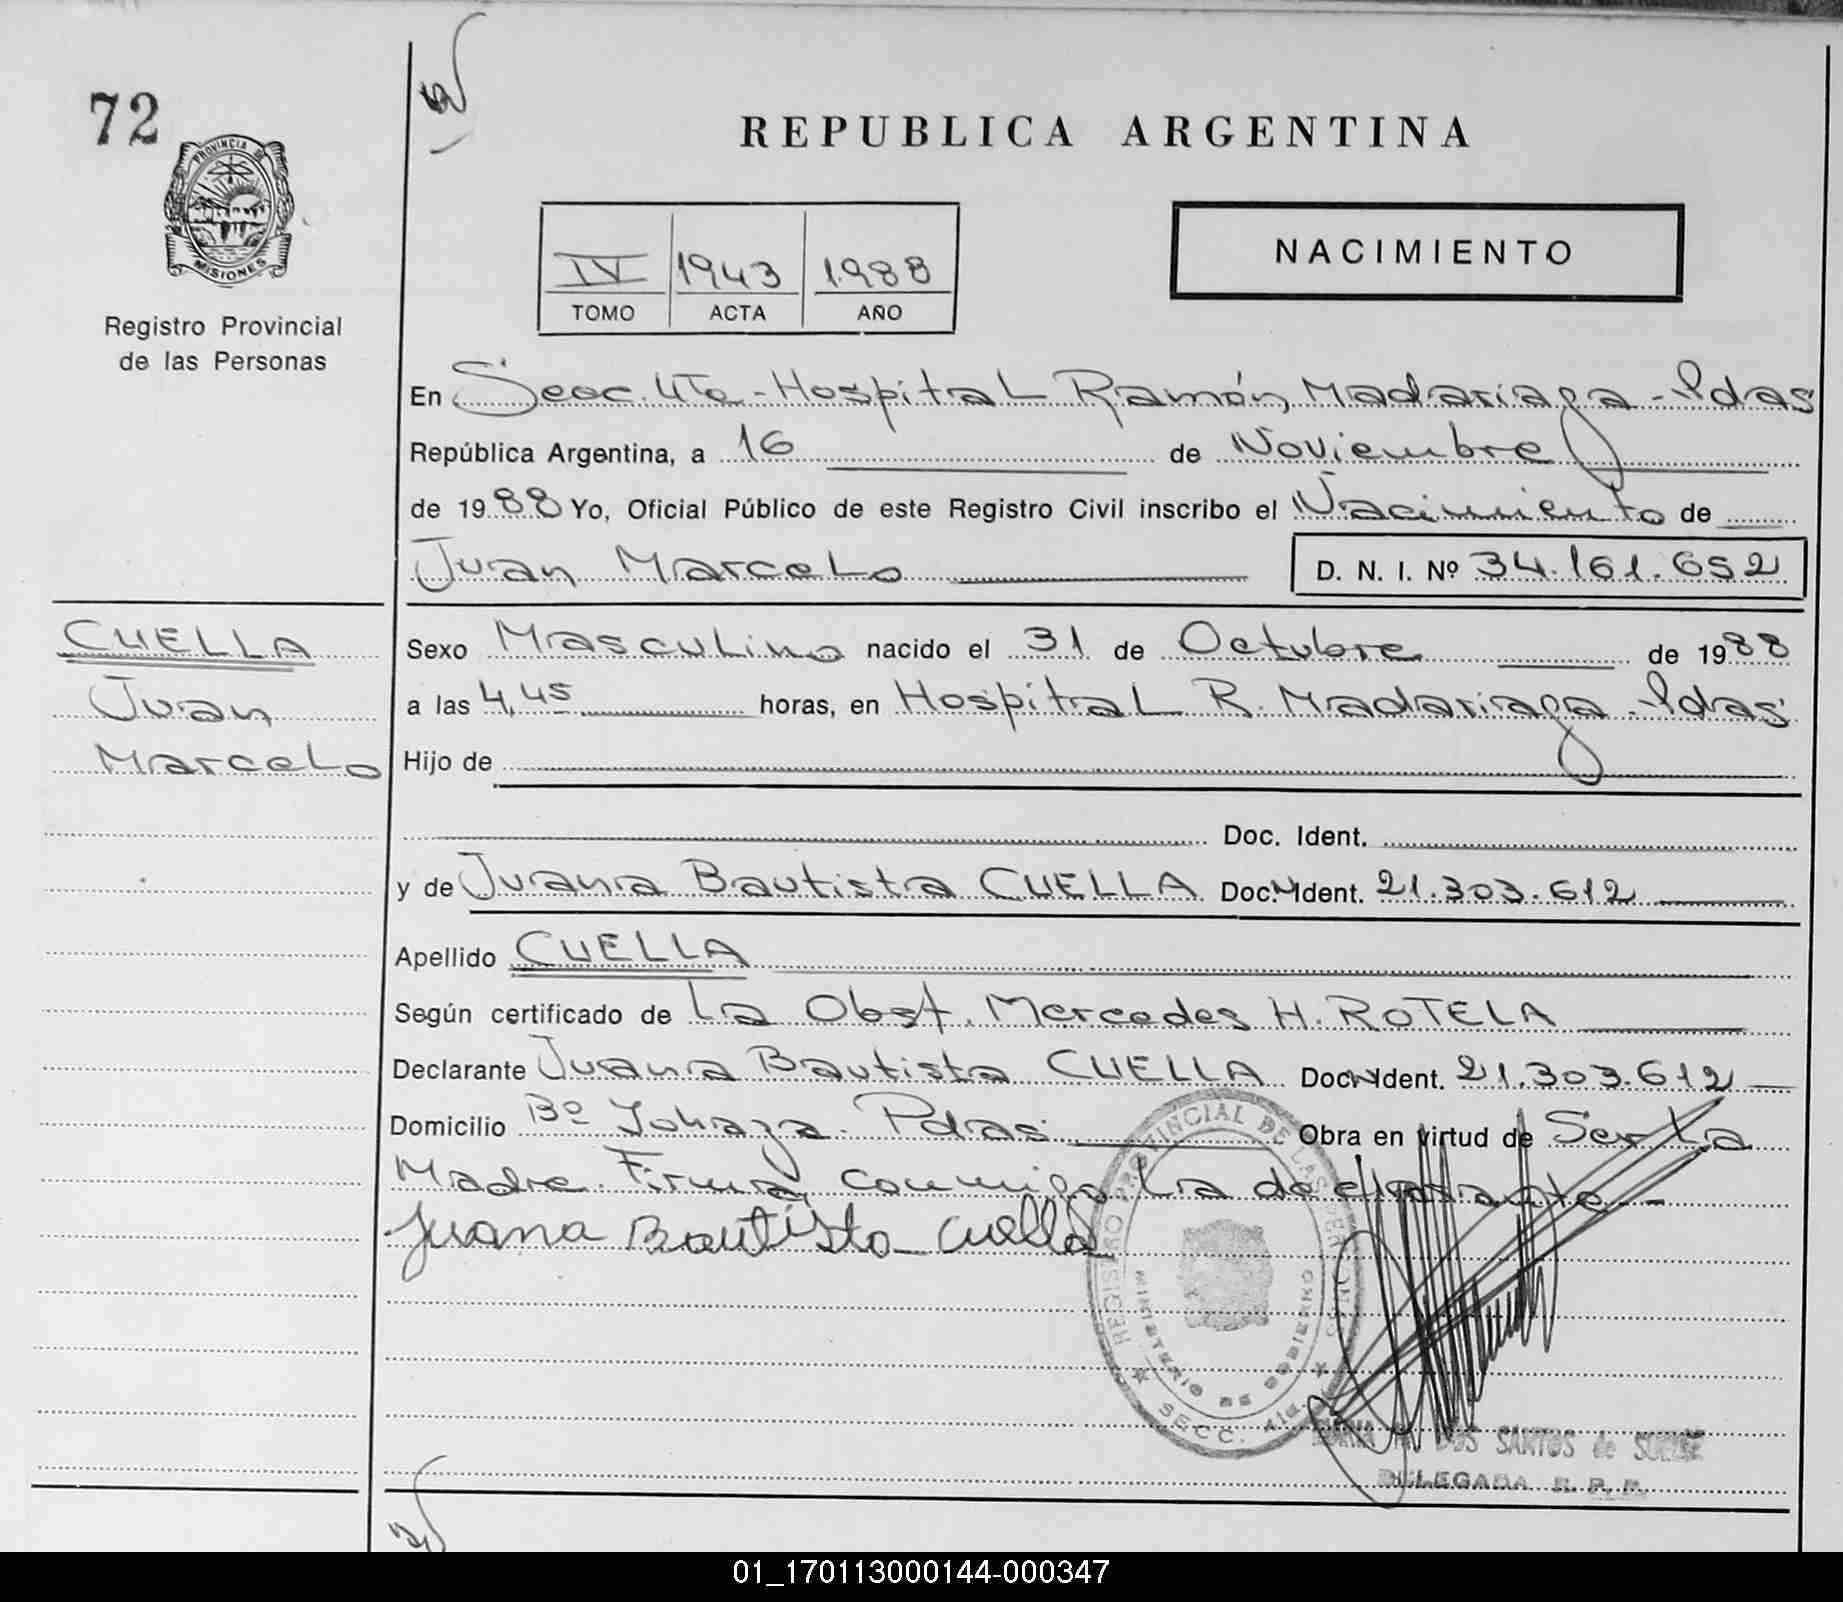 72
PROVINCIA DE
MISIONES
Registro Provincial
de las Personas
REPUBLICA ARGENTINA
IV 1943 1.988
TOMO ACTA AÑO
NACIMIENTO
En Secc. 4Ta - Hospital Ramón Madariaga - Pdas
República Argentina, a 16 de Noviembre
de 1988 Yo, Oficial Público de este Registro Civil inscribo el Nacimiento de
Juan Marcelo D. N. I. Nº 34.161.652
CUELLA
Juan
Marcelo
Sexo Masculino nacido el 31 de Octubre de 1988
a las 4,45 horas, en Hospital R. Madariaga - Pdas
Hijo de
Doc. Ident.
y de Juana Bautista CUELLA Doc. Ident. 21.303.612
Apellido CUELLA
Según certificado de La Obst. Mercedes H. ROTELA
Declarante Juana Bautista CUELLA Doc. Ident. 21.303.612
Domicilio Bº Pdas Obra en virtud de Ser La
Madre. Firma conmigo La declarante -
Juana Bautista Cuella
REGISTRO PROVINCIAL DE LAS PERSONAS
MINISTERIO DE GOBIERNO
SECC. 4ta.
DOS SANTOS de
DELEGADA R. P. P.
01_170113000144-000347